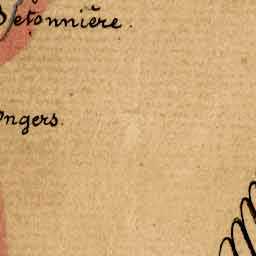 Betonnière.
Ongers.